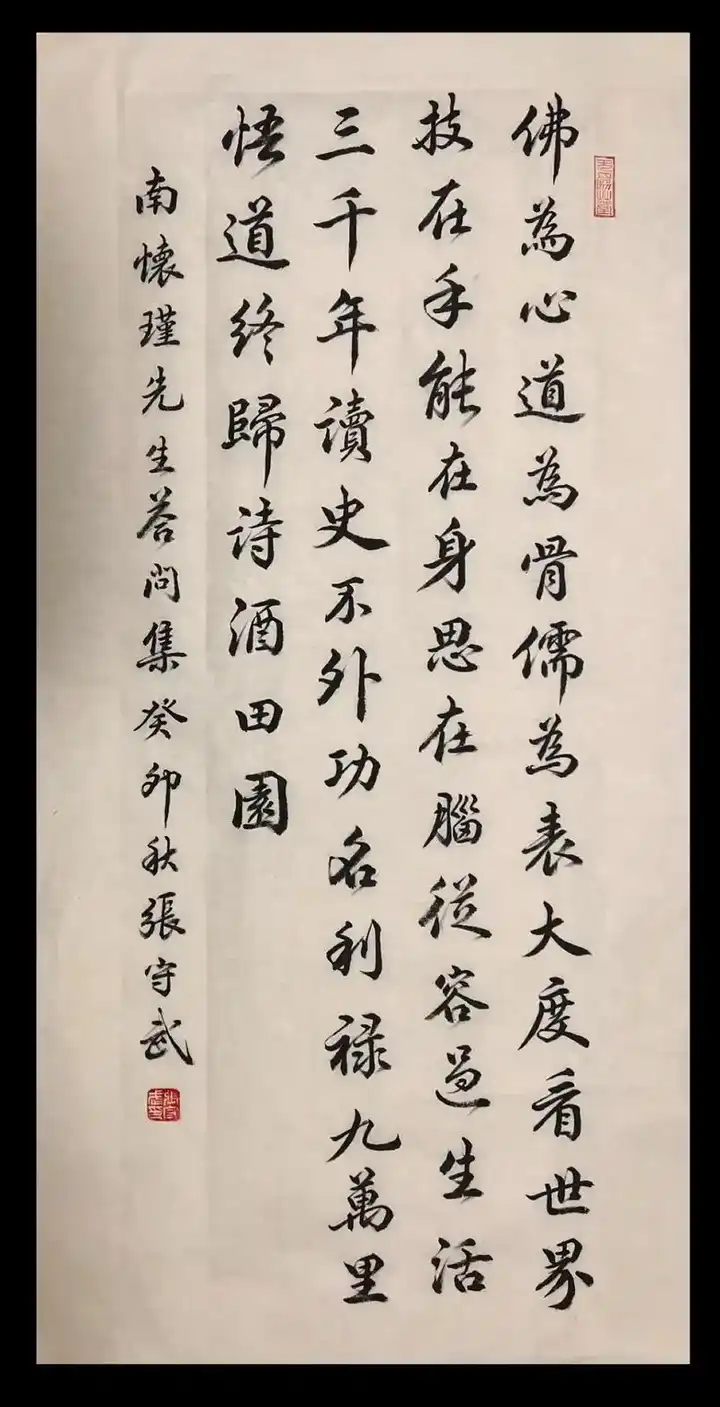 佛為心道為骨儒為表大度看世界
技在手能在身思在腦從容過生活
三千年讀史不外功名利祿九萬里
悟道終歸詩酒田園
南懷瑾先生答問集癸卯秋張守武